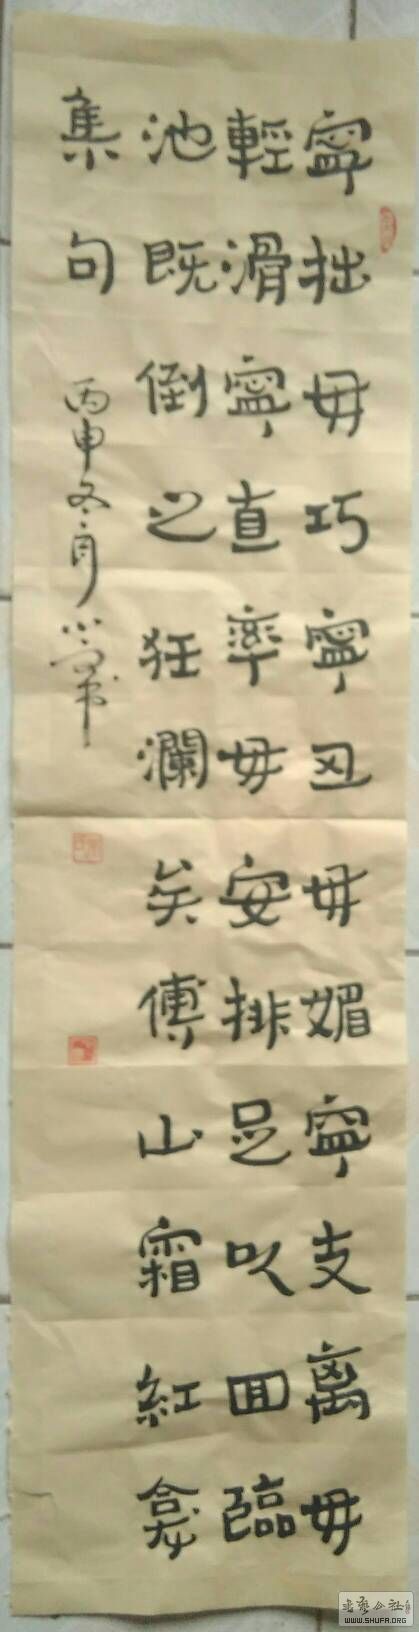 寧拙毋巧寧丑毋媚寧支离毋
輕滑寧直率毋安排足以回臨
池既倒之狂瀾矣傅山霜紅龛
集句
丙申冬月
WWW.SHUFA.ORG